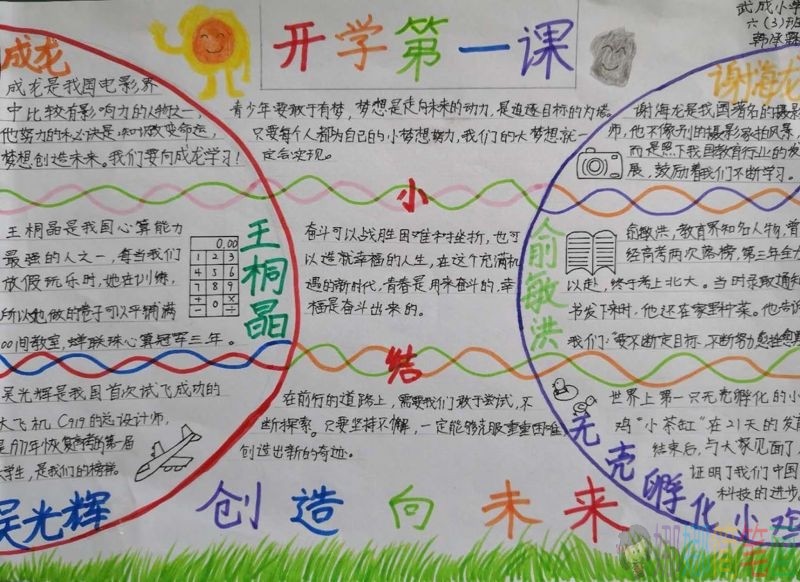 开学第一课
武成小学
六(3)班
成龙
成龙是我国电影界
中比较有影响力的人物之一，
他努力的秘诀是:唱歌改变命运，
梦想创造未来。我们要向成龙学习！
青少年要敢于有梦，梦想是走向未来的动力，是追逐目标的力量。
只要每个人都为自己的小梦想努力，我们的大梦想就一
定会实现。
谢海龙
谢海龙是我国著名的摄影
师，他不像别的摄影家拍风景，
而是照下我国教育行业的发
展，鼓励着我们不断学习。
小
王桐晶
王桐晶是我国心算能力
最强的人之一，每当我们
放假玩乐时，她在训练，
所以她做的卷子可以平铺满
00间教室，蝉联珠心算冠军三年。
0.00
1 2 3
4 5 6
7 8 9
+ 0 ×
- ÷
奋斗可以战胜困难和挫折，也可
以造就幸福的人生，在这个充满机
遇的新时代，青春是用来奋斗的，幸
福是奋斗出来的。
俞敏洪
俞敏洪，教育界知名人物，曾
经高考两次落榜，第三年全力
以赴，终于考上北大。当时录取通知
书发下来时，他还在家里种菜。他告诉
我们："要不断定目标，不断努力
结
吴光辉是我国首次试飞成功的
大飞机C919的总设计师，
是1977年恢复高考的第一届
大学生，是我们的榜样。
吴光辉
在前行的道路上，需要我们敢于尝试，不
断探索。只要坚持不懈，一定能够克服重重困难，
创造出新的奇迹。
世界上第一只无壳孵化的小
鸡"小茶缸"在21天的发育
结束后，与大家见面了，
证明了我们中国
科技的进步
无壳孵化小鸡
创造向未来